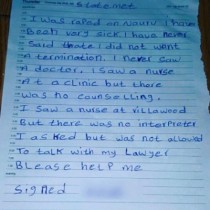 Statemet
I was raped on Nauru I have
Been very sick I have never
Said thate I did not want
A termination. I never saw
A doctor. I saw a nurse
At a clinic but there
was no counselling.
I saw a nurse at villawood
But there was no interpreter
I asked but was not allowed
To talk with my Lawyer
BLease help me
Signed